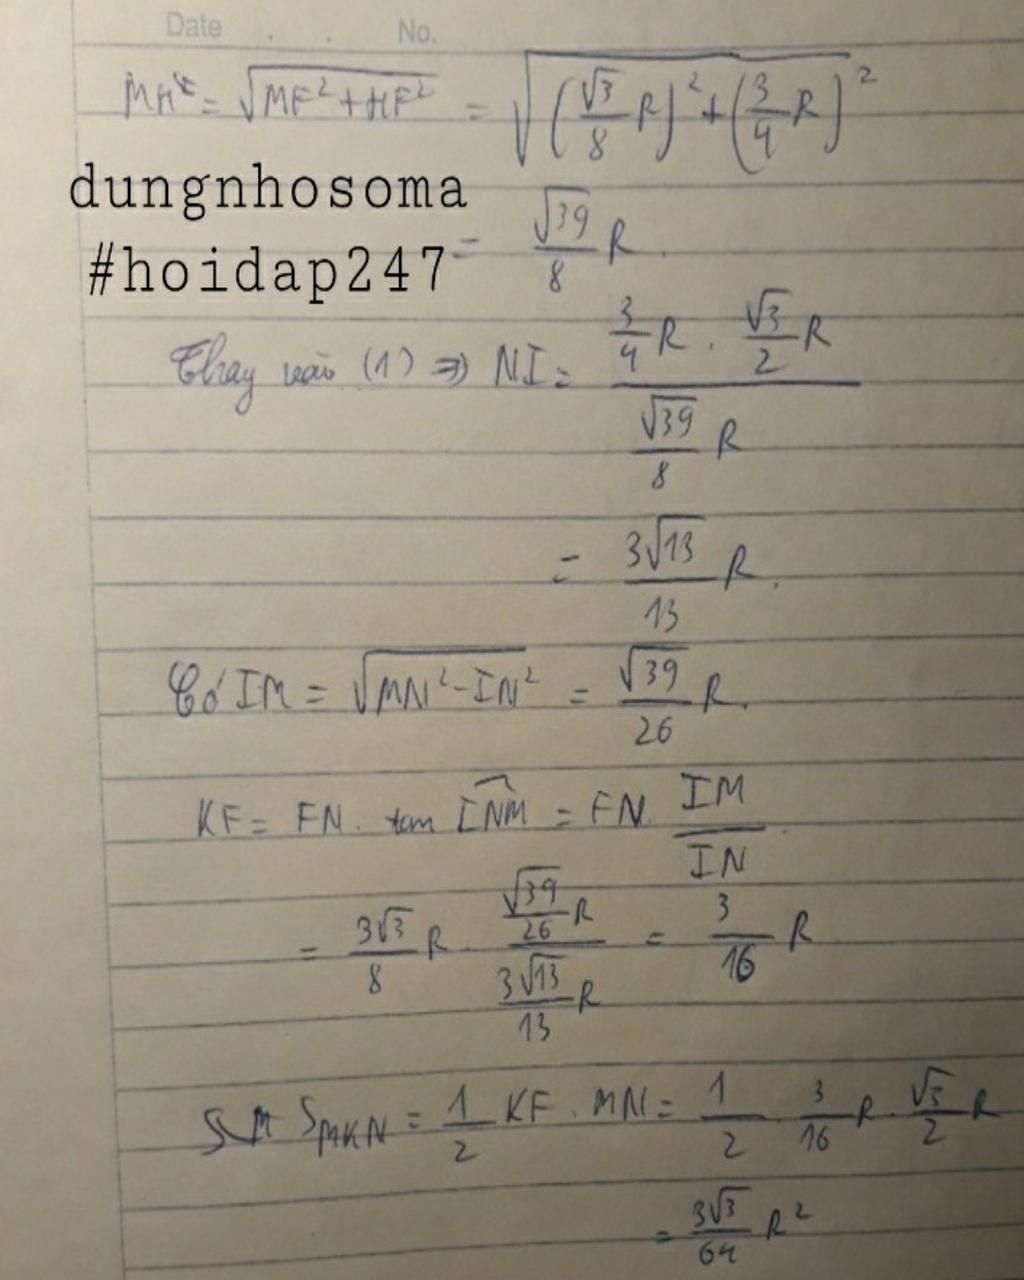 Date . . No.
MH = √(MF² + HF²) = √((√3/8 R)² + (3/4 R)²)
dungnhosoma
= √39/8 R.
#hoidap247
Thay vào (1) ⇒ NI = (3/4 R . √3/2 R)/(√39/8 R)
= 3√13/13 R.
Có IM = √(MN² - IN²) = √39/26 R.
KF = FN. tan INM = FN. IM/IN.
= 3√3/8 R . (√39/26 R)/(3√13/13 R) = 3/16 R
S_MKN = 1/2 KF . MN = 1/2 . 3/16 R . √3/2 R
= 3√3/64 R²